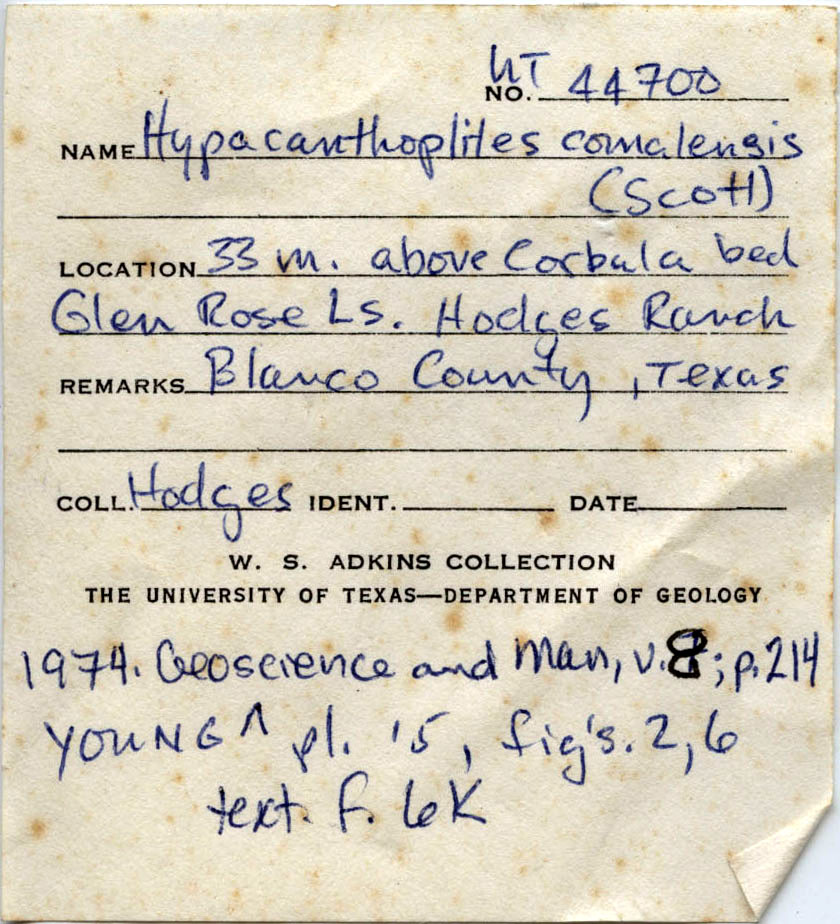 UT
NO. 44700
NAME Hypacanthoplites comalensis
(Scott)
LOCATION 33 m. above Corbula bed
Glen Rose Ls. Hodges Ranch
REMARKS Blanco County, Texas
COLL. Hodges IDENT. DATE
W. S. ADKINS COLLECTION
THE UNIVERSITY OF TEXAS—DEPARTMENT OF GEOLOGY
1974. Geoscience and Man, v. 8; p. 214
YOUNG ^ pl. 15, fig's. 2, 6
text. f. 6K